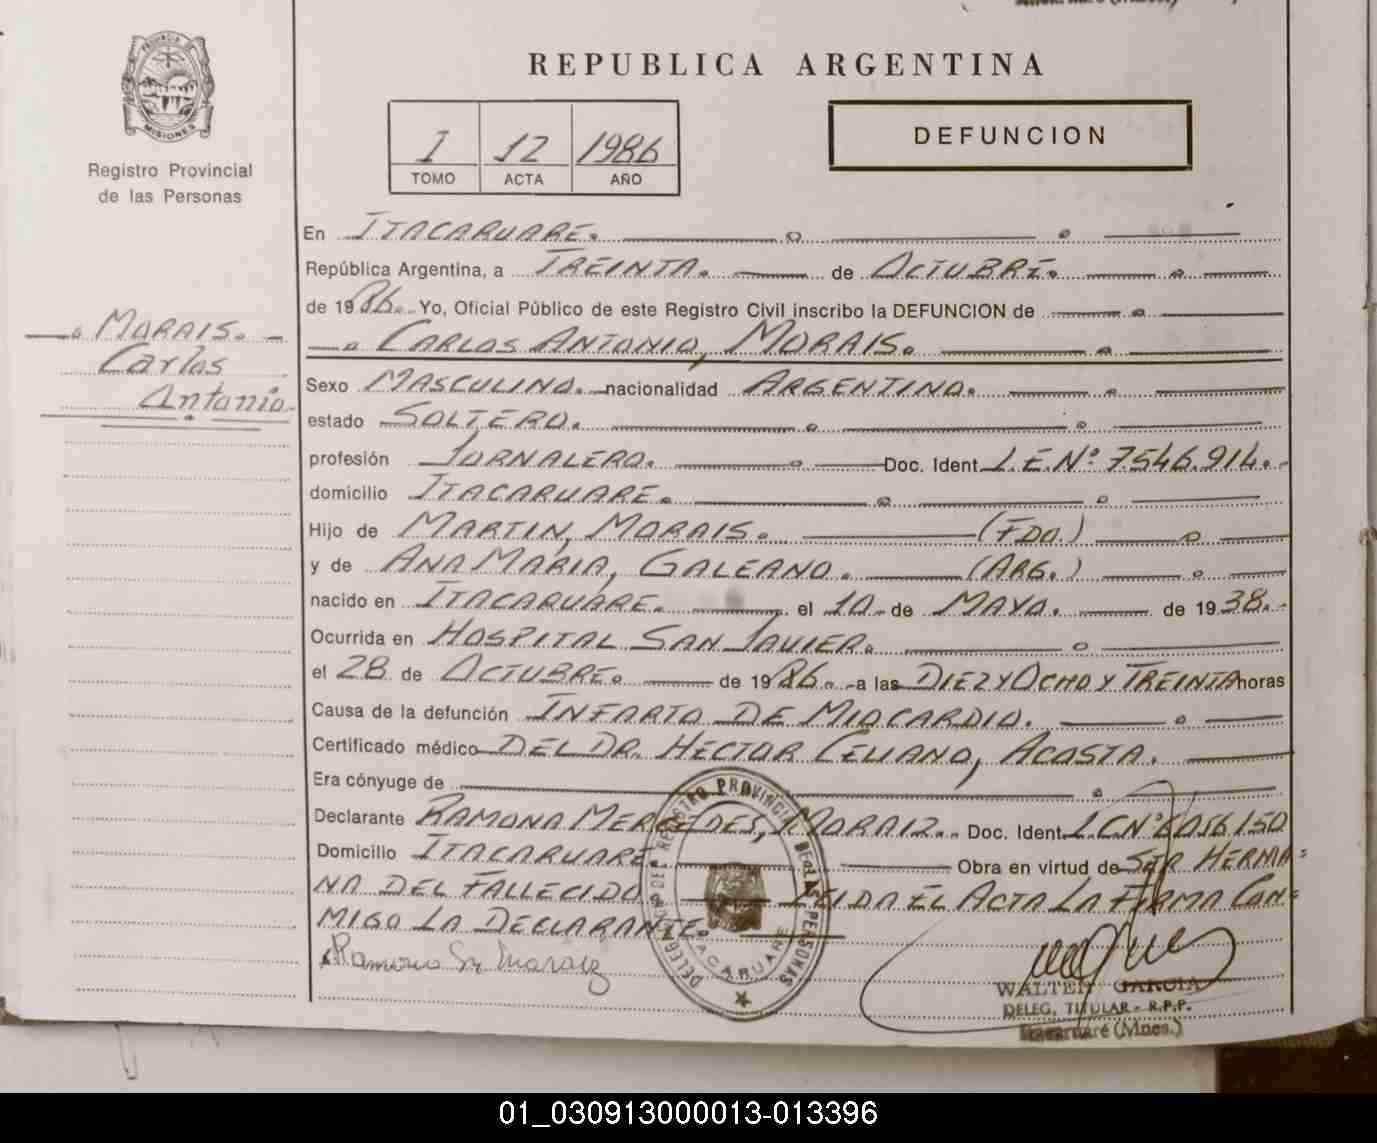 PROVINCIA DE
MISIONES
Registro Provincial
de las Personas
REPUBLICA ARGENTINA
I 12 1986
TOMO ACTA AÑO
DEFUNCION
En ITACARUARE.
República Argentina, a TREINTA. de OCTUBRE.
de 1986. Yo, Oficial Público de este Registro Civil inscribo la DEFUNCION de
MORAIS.
Carlos
Antonio
CARLOS ANTONIO, MORAIS.
Sexo MASCULINO. nacionalidad ARGENTINO.
estado SOLTERO.
profesión JORNALERO. Doc. Ident L.E.Nº 7.546.914.-
domicilio ITACARUARE.
Hijo de MARTIN, MORAIS. (FDO.)
y de ANA MARIA, GALEANO. (ARG.)
nacido en ITACARUARE. el 10 de MAYO. de 1938.-
Ocurrida en HOSPITAL SAN JAVIER.
el 28 de OCTUBRE. de 1986. a las DIEZ Y OCHO Y TREINTA horas
Causa de la defunción INFARTO DE MIOCARDIO.
Certificado médico DEL DR. HECTOR CELIANO, ACOSTA.
Era cónyuge de
Declarante RAMONA MERCEDES, MORAIZ. Doc. Ident L.C.Nº 6056150
Domicilio ITACARUARE. Obra en virtud de SER HERMA=
NA DEL FALLECIDO LEIDA EL ACTA LA FIRMA CON=
MIGO LA DECLARANTE.
DELEGACION DEL REGISTRO PROVINCIAL DE LAS PERSONAS
ITACARUARE
WALTER GARCIA
DELEG. TITULAR - R.P.P.
Itacaruaré (Mnes.)
01_030913000013-013396